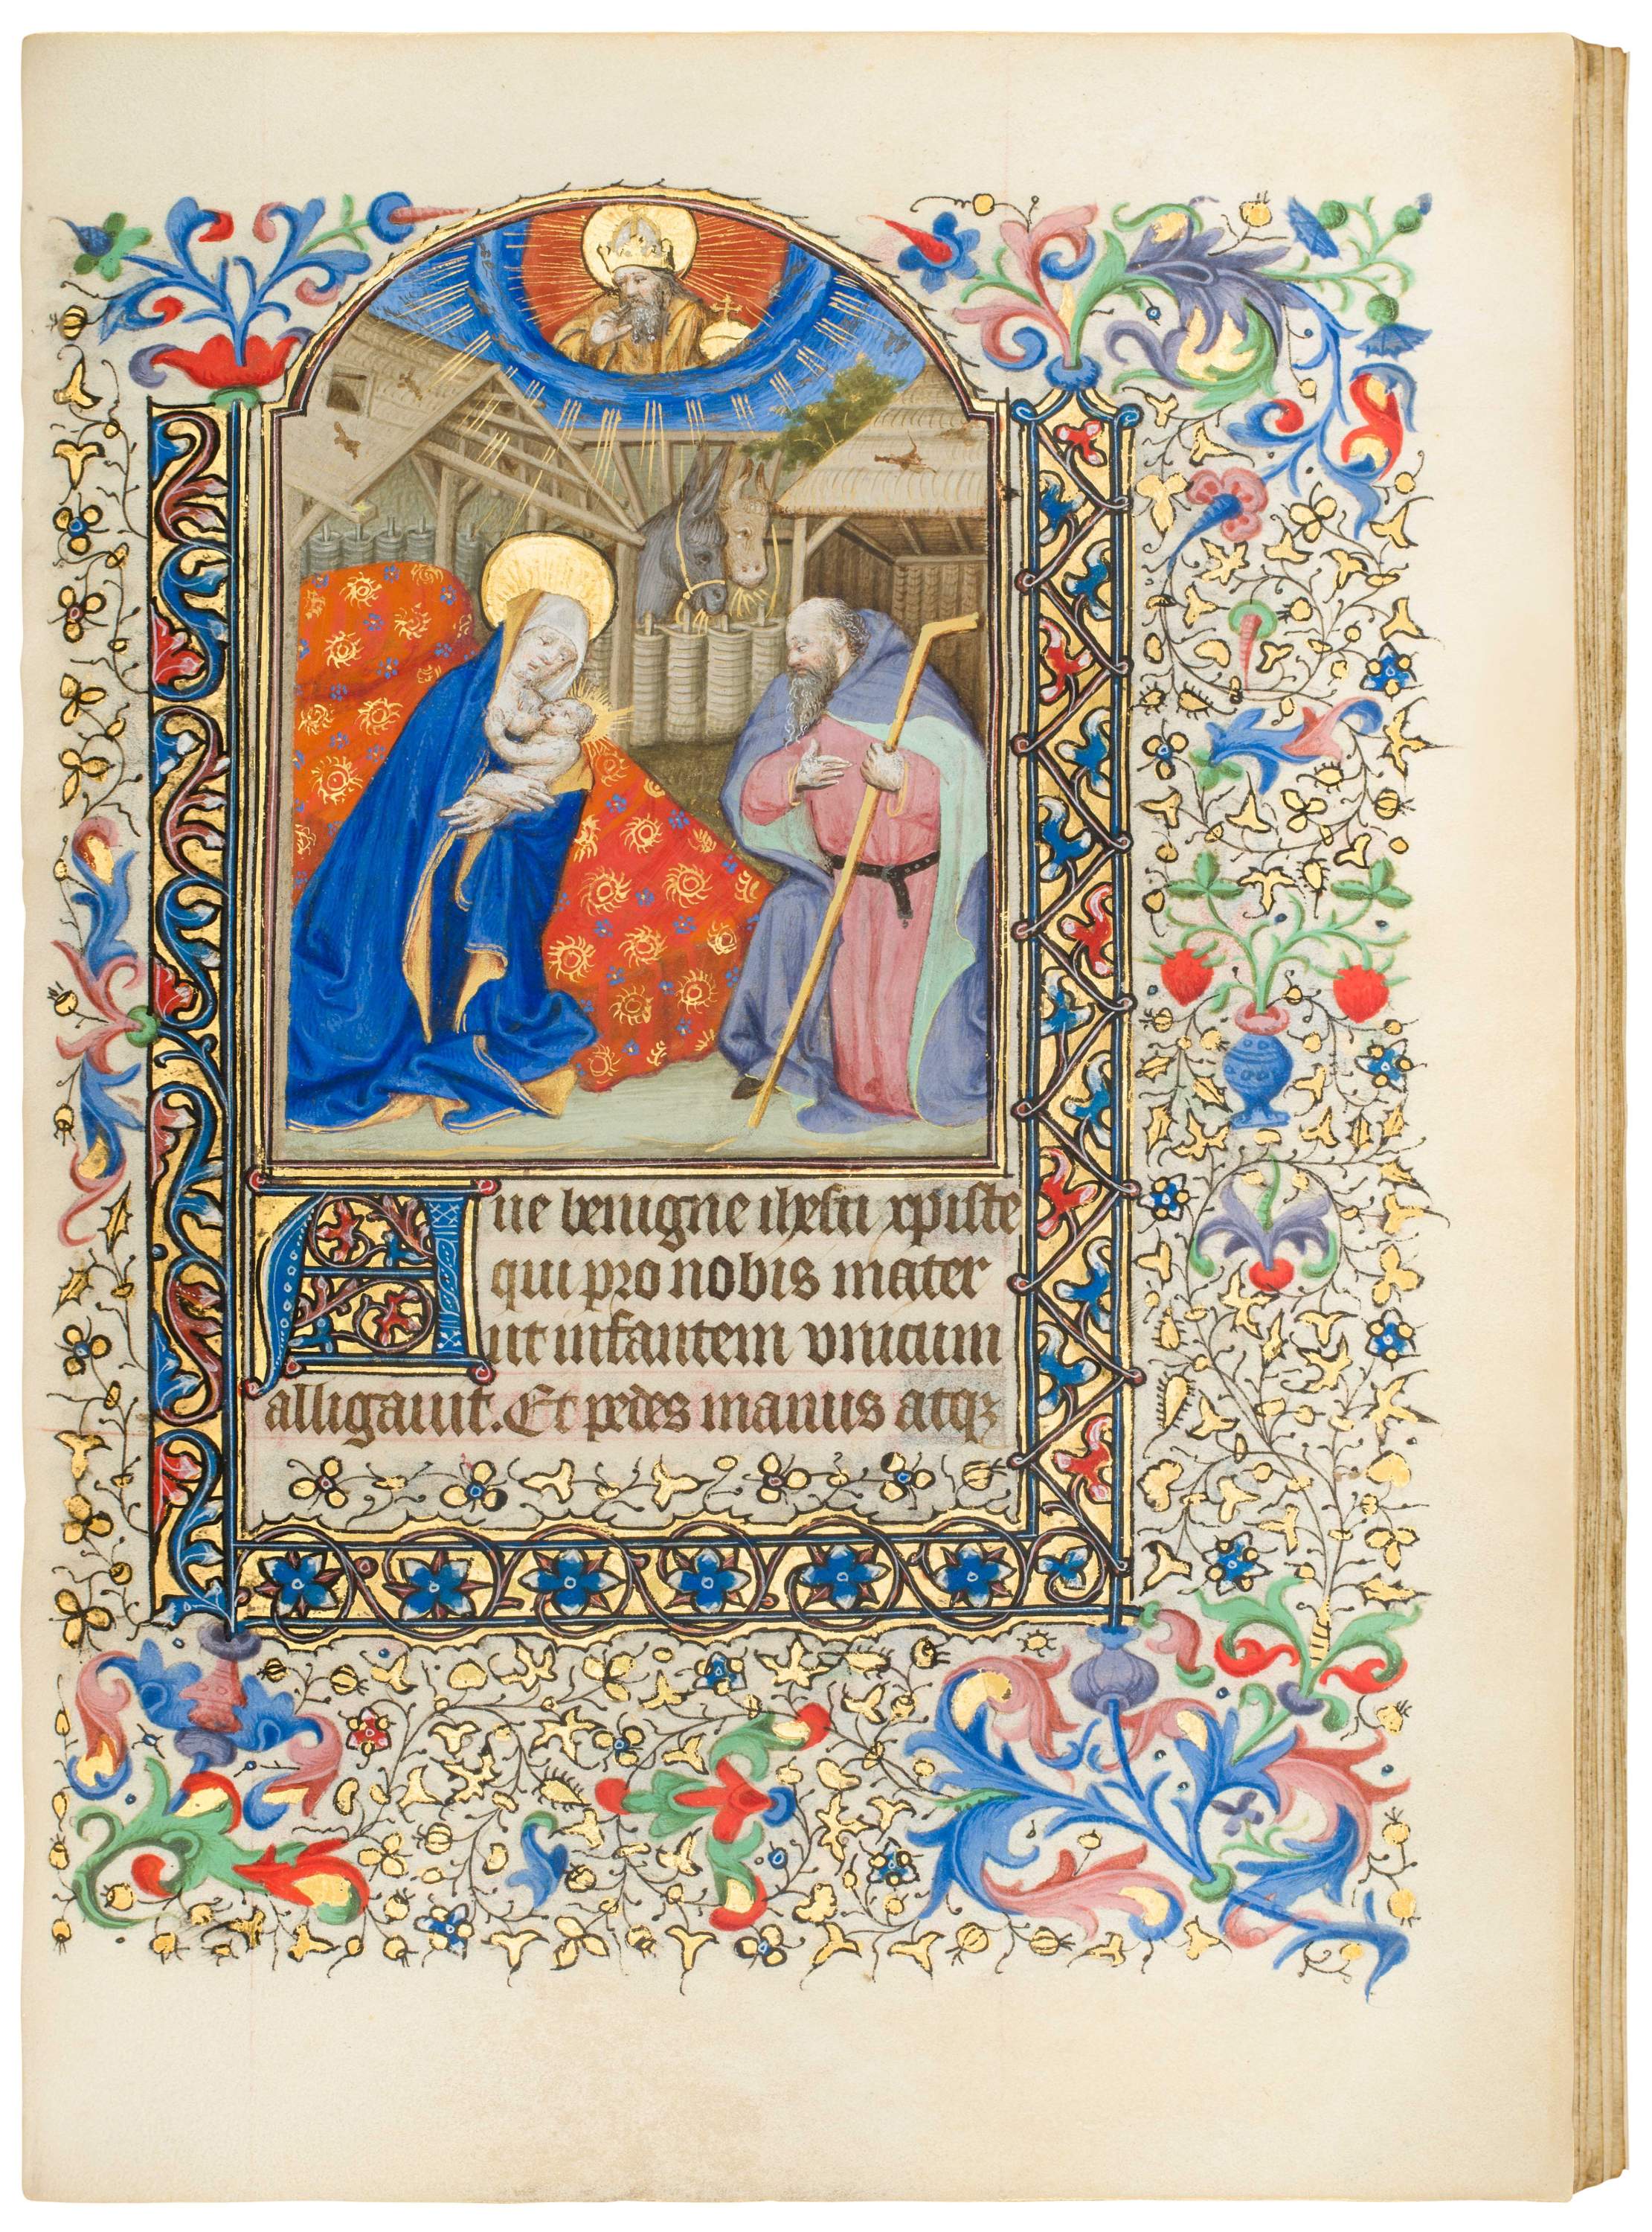 Aue benigne ihesu xpiste
qui pro nobis mater
ut infantem vnicum
alligauit. Et pedes manus atqꝫ